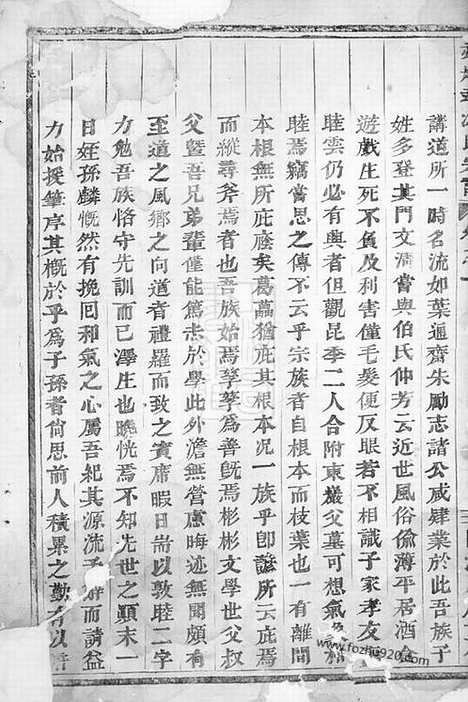 講道所一時名流如葉通齋朱勵志諸公咸肄業於此吾族子
姓多登其門文清嘗與伯氏仲芳云近世風俗偷薄平居酒食
遊戲生死不負及利害僅毛髮便反眼若不相識子家孝友
睦雲仍必有興者但觀昆季二人合附東巖父墓可想氣
睦焉竊嘗思之傳不云乎宗族者自根本枝葉也一有離間
本根無所庇癊矣葛藟猶庇其根本况一族乎卽諺所云庇焉
而縱尋斧焉者也吾族始焉孳孳爲善旣焉彬彬文學世父叔
父曁吾兄弟輩僅能篤志於學此外澹無營慮晦迹無聞頗有
至道之風鄉之向道者禮羅而致之賓席暇日耑以敦睦二字
力勉吾族恪守先訓而已澤生也晚恍焉不知先世之顛末一
日姪孫麟慨然有挽囘和氣之心屬吾紀其源流予辭而請益
力始援筆序其概於乎爲子孫者尙思前人積累之勤有以
www.fozhu920.com